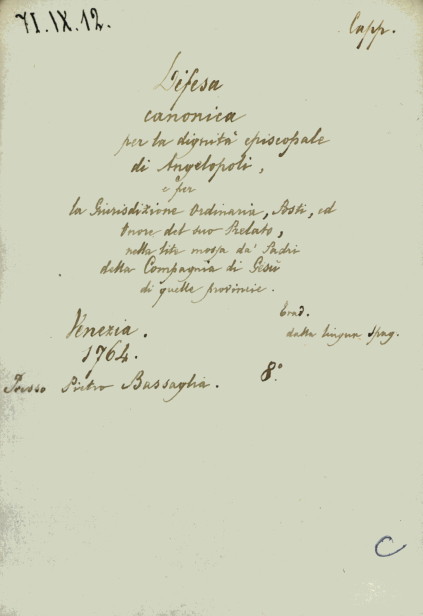 71.IX.12.
Capp.
Difesa
canonica
per la dignità episcopale
di Angelopoli,
e per
la Giurisdizione Ordinaria, Posti, ed
Onore del suo Prelato,
nella lite mossa da' Padri
della Compagnia di Gesù
di quelle provincie.
Trad.
dalla lingua Spag.
Venezia.
1764.
8º
Presso Pietro Bassaglia.
C